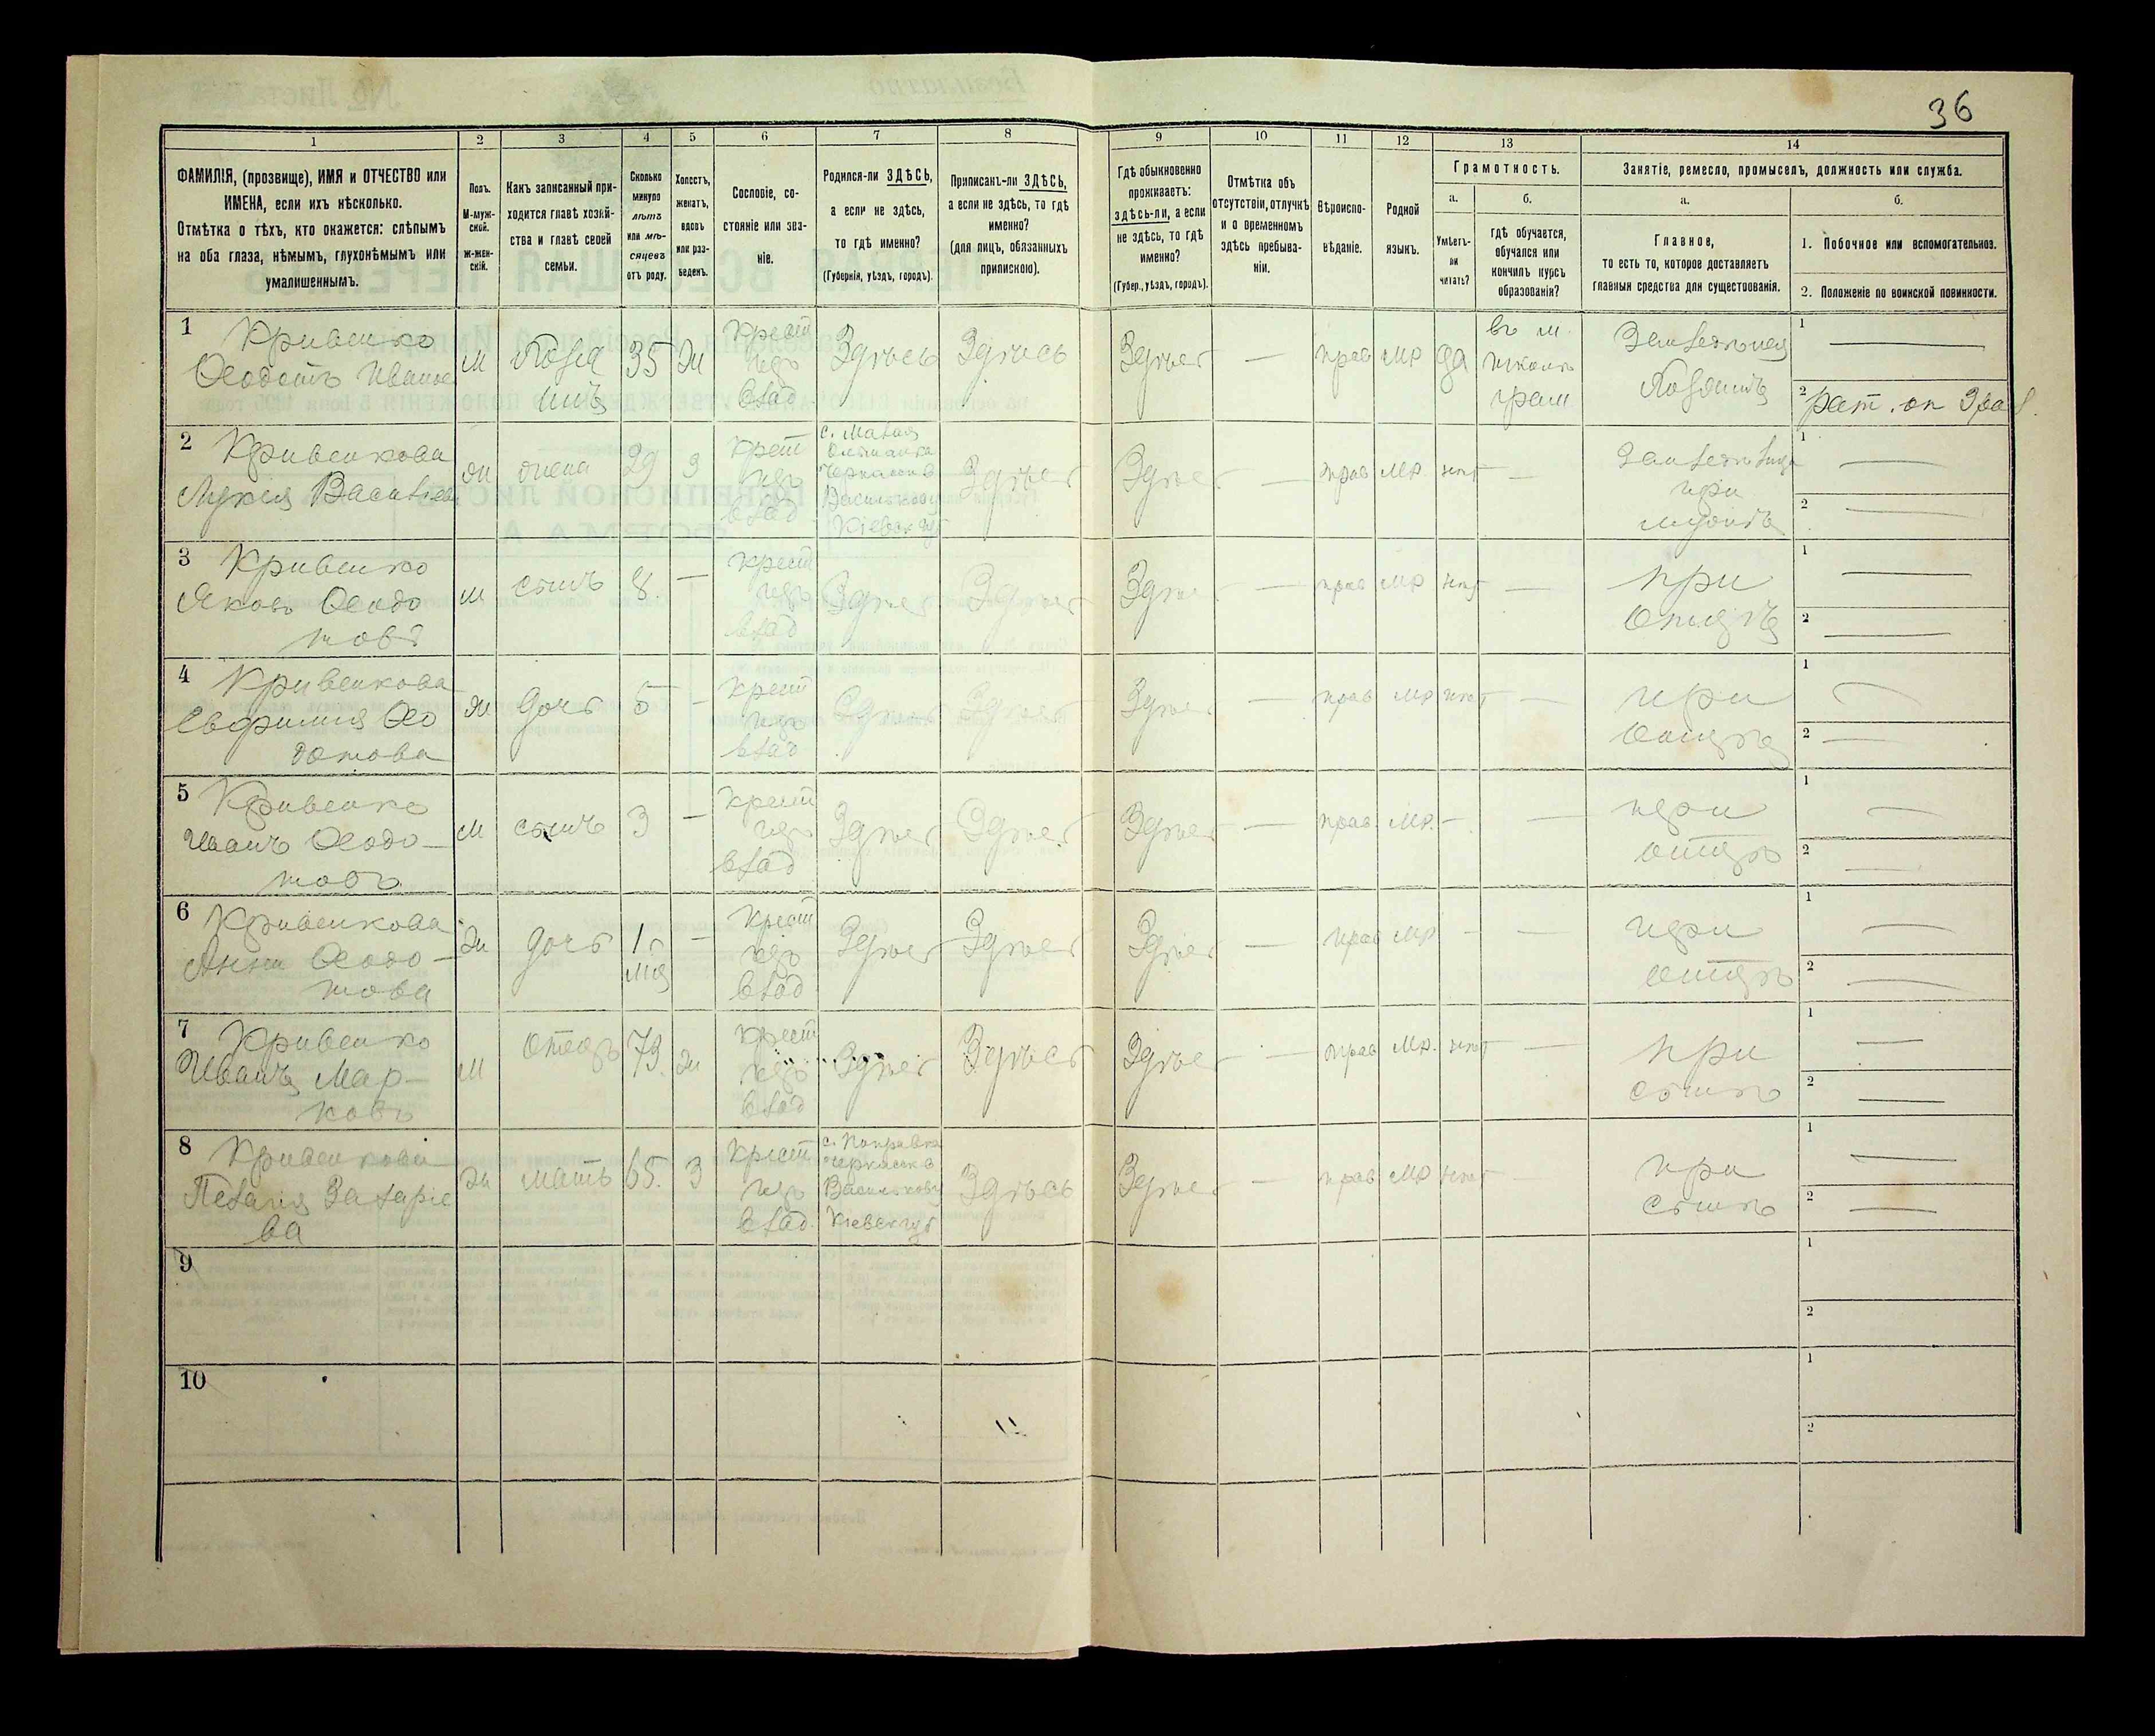 36
1
2
3
4
5
6
7
8
9
10
11
12
13
14
ФАМИЛІЯ, (прозвище), ИМЯ и ОТЧЕСТВО или
ИМЕНА, если ихъ нѣсколько.
Отмѣтка о тѣхъ, кто окажется: слѣпымъ
на оба глаза, нѣмымъ, глухонѣмымъ или
умалишеннымъ.
Полъ.
М-муж-
ской.
Ж-жен-
скій.
Какъ записанный при-
ходится главѣ хозяй-
ства и главѣ своей
семьи.
Сколько
минуло
лѣтъ
или мѣ-
сяцевъ
отъ роду.
Холостъ,
женатъ,
вдовъ
или раз-
веденъ.
Сословіе, со-
стояніе или зва-
ніе.
Родился-ли ЗДѢСЬ,
а если не здѣсь,
то гдѣ именно?
(Губернія, уѣздъ, городъ).
Приписанъ-ли ЗДѢСЬ,
а если не здѣсь, то гдѣ
именно?
(для лицъ, обязанныхъ
припискою).
Гдѣ обыкновенно
проживаетъ:
здѣсь-ли, а если
не здѣсь, то гдѣ
именно?
(Губер., уѣздъ, городъ).
Отмѣтка объ
отсутствіи, отлучкѣ
и о временномъ
здѣсь пребыва-
ніи.
Вѣроиспо-
вѣданіе.
Родной
языкъ.
Грамотность.
а.
б.
Умѣетъ-
ли
читать?
гдѣ обучается,
обучался или
кончилъ курсъ
образованія?
Занятіе, ремесло, промыселъ, должность или служба.
а.
б.
Главное,
то есть то, которое доставляетъ
главныя средства для существованія.
1. Побочное или вспомогательное.
2. Положеніе по воинской повинности.
1 Кривенко
Ѳеодотъ Иванов
м
хозя
инъ
35
ж
Крест
изъ
влад
Здѣсь
Здѣсь
Здѣсь
—
прав
мр
да
въ н.
школѣ
грам
Земледѣлец
хозяинъ
1 —
2 рат. оп
2 Кривенкова
Лукія Васильев
ж
жена
29
з
Крест
изъ
влад
с. Малая
Черкасов
Васильков
Кіевск
Здѣсь
Здѣсь
—
прав
мр.
нѣт
—
при
мужѣ
1 —
2 —
3 Кривенко
Яковъ Ѳеодо
товъ
м
сынъ
8.
—
Крест
изъ
влад
Здѣсь
Здѣсь
Здѣсь
—
прав
мр
нѣт
—
при
отцѣ
1 —
2 —
4 Кривенкова
Евфимія Ѳео
дотова
ж
дочь
5
—
Крест
изъ
влад
Здѣсь
Здѣсь
Здѣсь
—
прав
мр
нѣт
—
при
отцѣ
1 —
2 —
5 Кривенко
Иванъ Ѳеодо-
товъ
м
сынъ
3
—
Крест
изъ
влад
Здѣсь
Здѣсь
Здѣсь
—
прав
мр.
—
—
при
отцѣ
1 —
2 —
6 Кривенкова
Анна Ѳеодо-
това
ж
дочь
1
—
Крест
изъ
влад
Здѣсь
Здѣсь
Здѣсь
—
прав
мр
—
—
при
отцѣ
1 —
2 —
7 Кривенко
Иванъ Мар-
ковъ
м
отецъ
79.
ж
Крест
изъ
влад
Здѣсь
Здѣсь
Здѣсь
—
прав
мр.
нѣт
—
при
сынѣ
1 —
2 —
8 Кривенкова
Пелагія Захаріе
ва
ж
мать
65.
з
Крест
изъ
влад.
с. Покровка
Черкаск
Васильков
Кіевск губ
Здѣсь
Здѣсь
—
прав
мр
нѣт
—
при
сынѣ
1 —
2 —
9
1
2
10
1
2